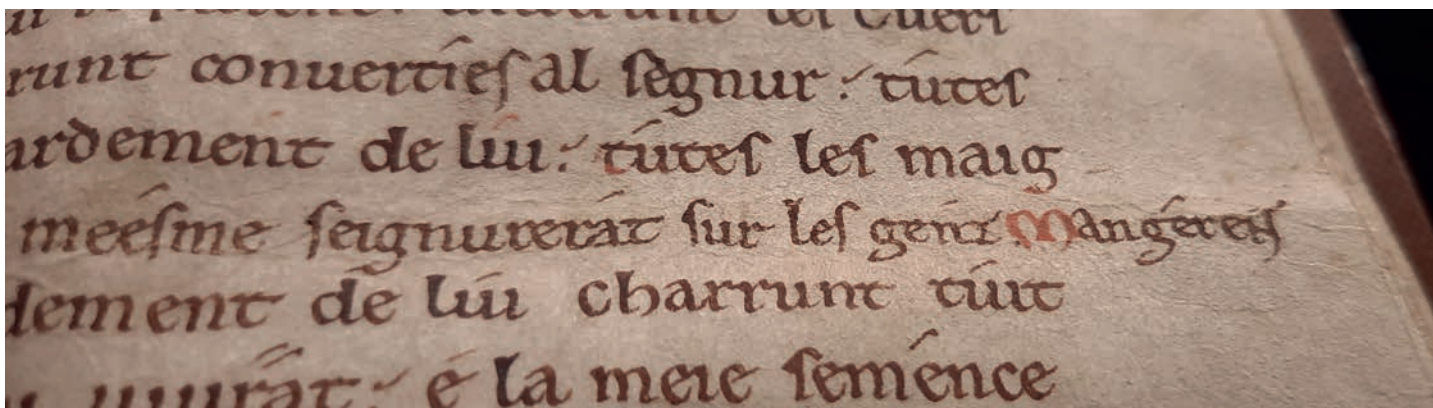 runt conuertíeſ al ſegnur : tuteſ
ardement de lúi : túteſ leſ maig
meéſme ſeignurerát ſur leſ genz Mangérent
dement de lúi charrunt túit
uiurát : é la meie ſeménce